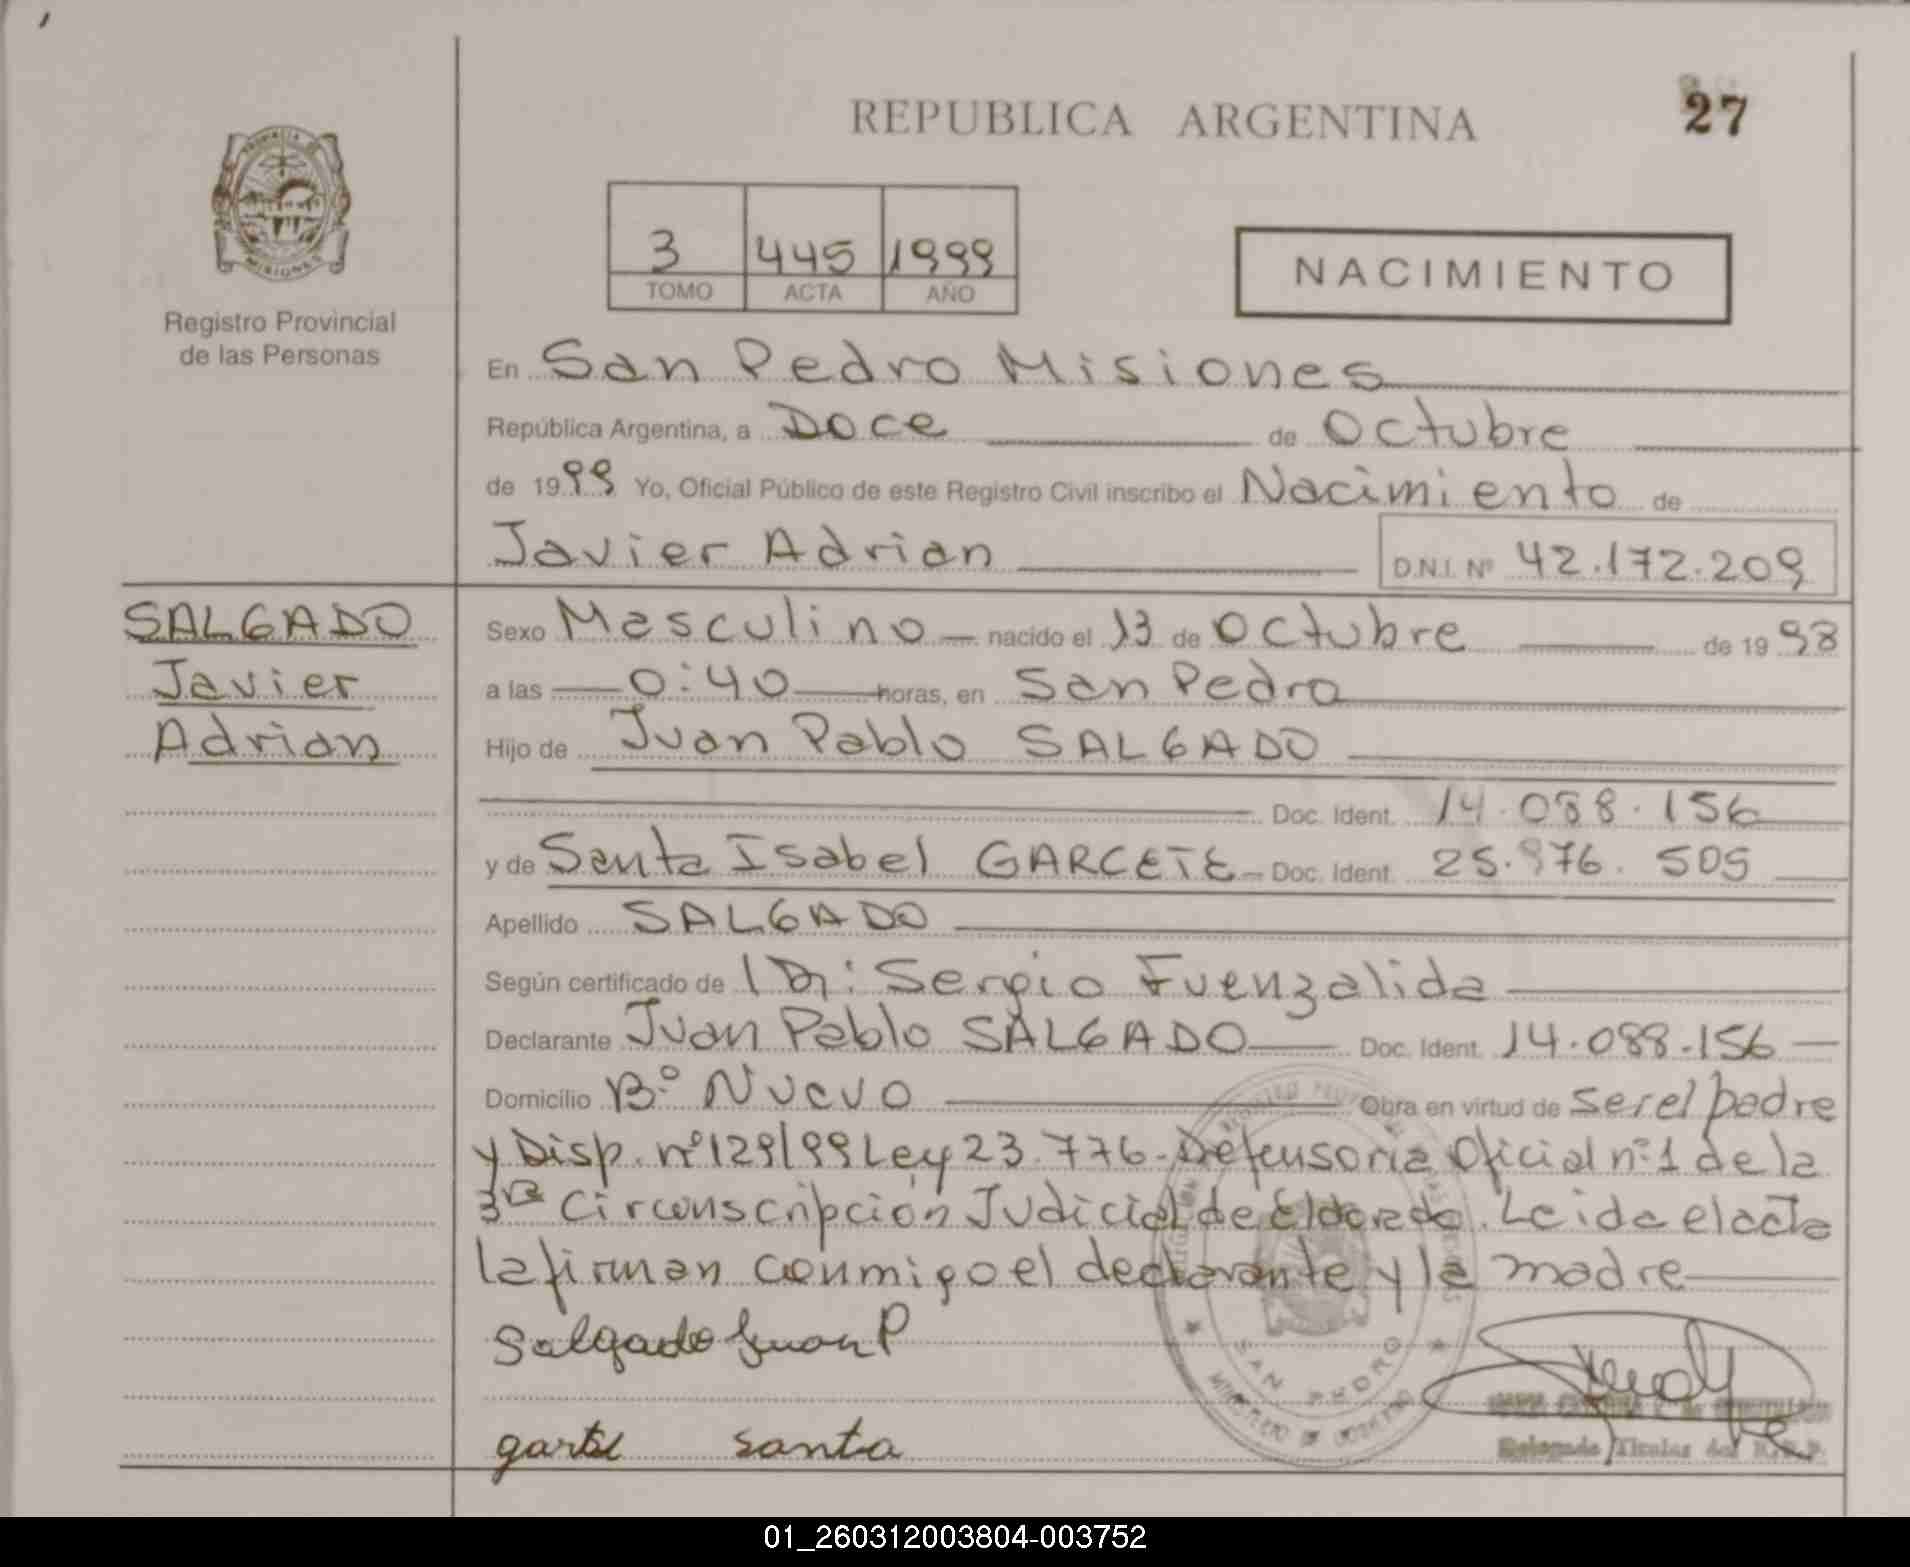 REPUBLICA ARGENTINA
27
PROVINCIA DE
MISIONES
Registro Provincial
de las Personas
3 445 1999
TOMO ACTA AÑO
NACIMIENTO
En San Pedro Misiones
República Argentina, a Doce de Octubre
de 1999 Yo, Oficial Público de este Registro Civil inscribo el Nacimiento de
Javier Adrian D.N.I. Nº 42.172.209
SALGADO
Javier
Adrian
Sexo Masculino nacido el 13 de Octubre de 1998
a las 0:40 horas, en San Pedro
Hijo de Juan Pablo SALGADO
Doc. Ident. 14.088.156
y de Santa Isabel GARCETE Doc. Ident. 25.976.505
Apellido SALGADO
Según certificado de Dr: Sergio Fuenzalida
Declarante Juan Pablo SALGADO Doc. Ident. 14.088.156
Domicilio Bº Nuevo Obra en virtud de ser el padre
y Disp. nº 129/99 Ley 23.776. Defensoria Oficial nº 1 de la
3ra Circunscripción Judicial de Eldorado. Leida el acta
la firman conmigo el declarante y la madre
Salgado Juan P
SAN PEDRO
MINISTERIO DE GOBIERNO
santa
Delegada Titular del R.P.P.
01_260312003804-003752